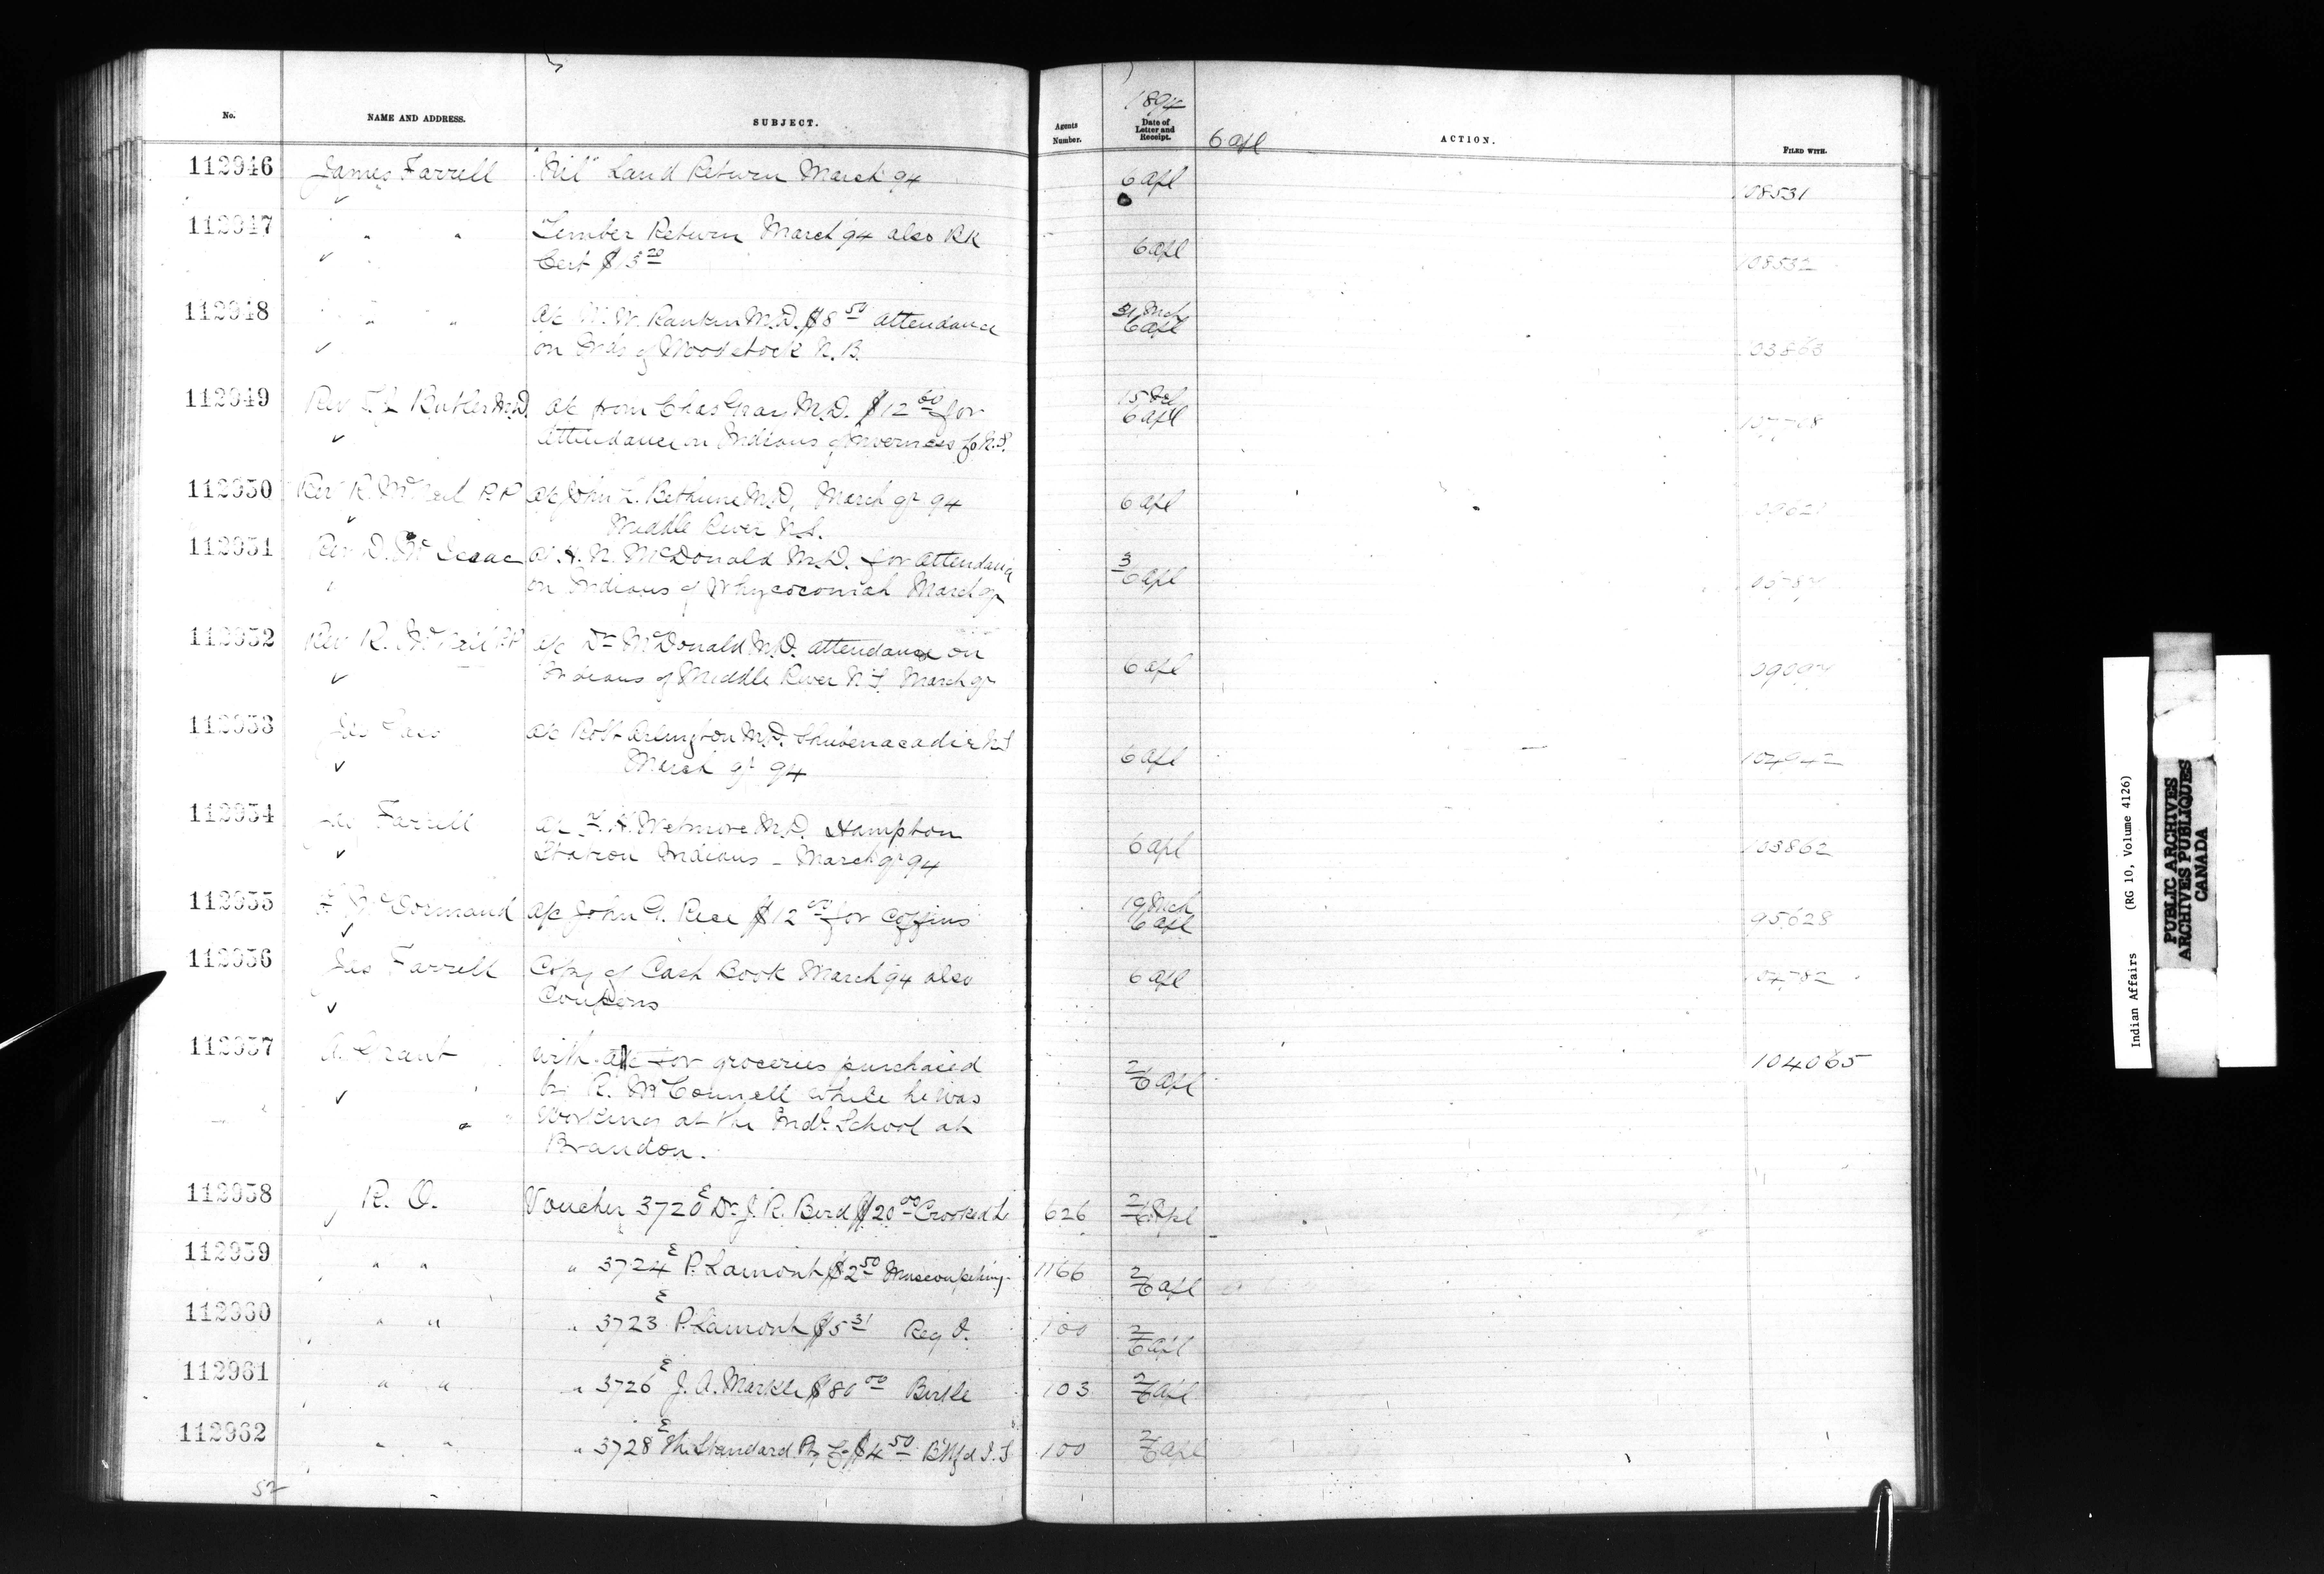 No. NAME AND ADDRESS. SUBJECT. Agents Number. 1894 Date of Letter and Receipt. 6 Apl ACTION. FILED WITH.
112946 James Farrell "Nil" Land Return March 94 6 Apl 108531
112947 " " Timber Return March 94 also BK 6 Apl 108532
Cert $13 20
112948 " " a/c W. W. Rankin M.D. $8 50 attendance 31 Mch 6 Apl 103863
on Inds of Woodstock N.B.
112949 Rev Butler M.D. a/c from Chas Gray M.D. $12 00 for 15 6 Apl
attendance on Indians of Inverness Co N.S.
112950 Rev R. McNeil P.P. a/c John L. Bethune M.D. March qr 94 6 Apl
Middle River N.S.
112951 Rev D. McIsaac a/c H. N. McDonald M.D. for attendance 3 6 Apl
on Indians of Whycocomah March qr
112952 Rev R. McNeil P.P a/c Dr McDonald M.D. attendance on 6 Apl
Indians of Middle River N.S. March qr
112953 Jas Gass a/c Robt Arlington M.D. Shubenacadie N.S 6 Apl
March qr 94
112954 Jas Farrell a/c F. H. Wetmore M.D. Hampton 6 Apl 103862
Station Indians - March qr 94
112955 F. McDormand a/c John G. Rice $12 00 for coffins 19 Mch 6 Apl 95628
112956 Jas Farrell Copy of Cash Book March 94 also 6 Apl
Coupons
112957 A. Grant with a/c for groceries purchased 2/6 Apl 104065
by R. McConnell while he was
working at the Indn School at
Brandon.
112958 R. O. Voucher 3720 E Dr J. R. Bird $20 00 Crooked L 626 2/6 Apl
112959 " " " 3724 E P. Lamont $2 50 Muscowpetung 1166 2/6 Apl
112960 " " " 3723 E P. Lamont $5 31 Reg I. 100 2/6 Apl
112961 " " " 3726 E J. A. Markle $80 00 Birtle 103 2/6 Apl
112962 " " " 3728 E The Standard Ptg Co $4 50 B'tlfd I.S 100 2/6 Apl
52
Indian Affairs (RG 10, Volume 4126)
PUBLIC ARCHIVES
ARCHIVES PUBLIQUES
CANADA